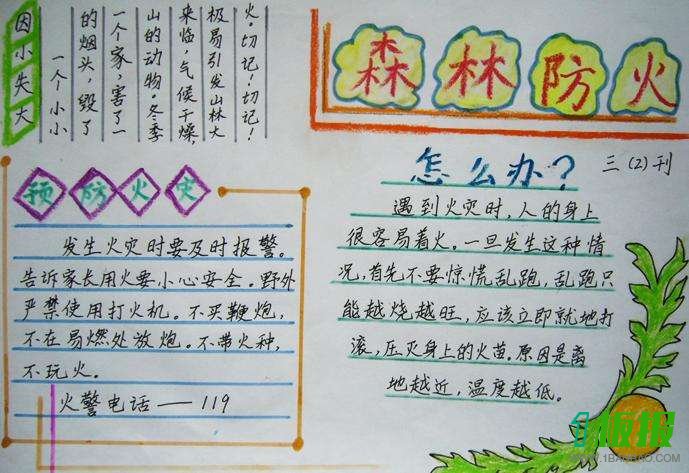 因小失大
一个小小
的烟头，毁了
一个家，害了一
山的动物。冬季
来临，气候干燥，
极易引发山林大
火。切记！切记！
森林防火
三（2）刊
预防火灾
发生火灾时要及时报警。
告诉家长用火要小心安全。野外
严禁使用打火机。不买鞭炮，
不在易燃处放炮。不带火种，
不玩火。
火警电话——119
怎么办？
遇到火灾时，人的身上
很容易着火。一旦发生这种情
况，首先不要惊慌乱跑，乱跑只
能越烧越旺，应该立即就地打
滚，压灭身上的火苗。原因是离
地越近，温度越低。
板报
WWW.1BANBAO.COM